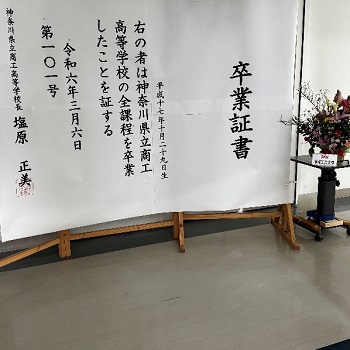 卒業証書
平成十七年十月二十九日生
右の者は神奈川県立商工
高等学校の全課程を卒業
したことを証する
令和六年三月六日
第一〇一号
神奈川県立商工高等学校長 塩原 正美